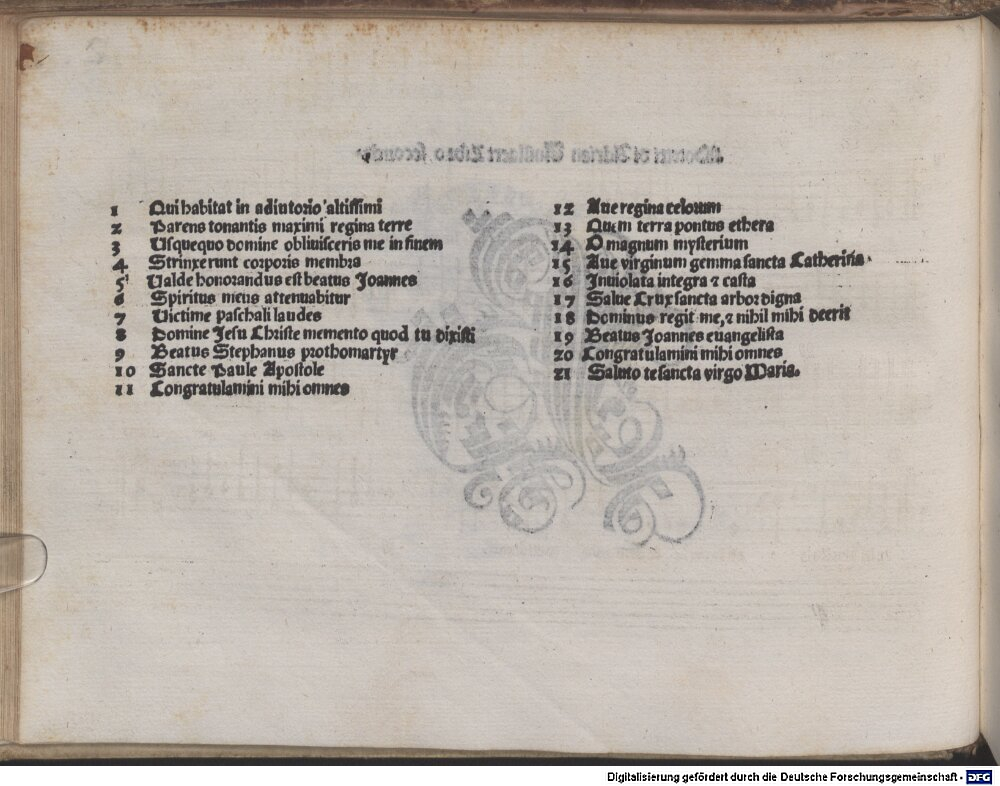 1 Qui habitat in adiutorio altissimi
2 Parens tonantis maximi regina terre
3 Usquequo domine obliuisceris me in finem
4 Strinxerunt corporis membra
5 Ualde honorandus est beatus Joannes
6 Spiritus meus attenuabitur
7 Uictime paschali laudes
8 Domine Jesu Christe memento quod tu dixisti
9 Beatus Stephanus prothomartyr
10 Sancte Paule Apostole
11 Congratulamini mihi omnes
12 Aue regina celorum
13 Quem terra pontus ethera
14 O magnum mysterium
15 Aue virginum gemma sancta Catherina.
16 Inuiolata integra ⁊ casta
17 Salue Crux sancta arbor digna
18 Dominus regit me, ⁊ nihil mihi deerit
19 Beatus Joannes euangelista
20 Congratulamini mihi omnes
21 Saluto te sancta virgo Maria.
Digitalisierung gefördert durch die Deutsche Forschungsgemeinschaft - DFG